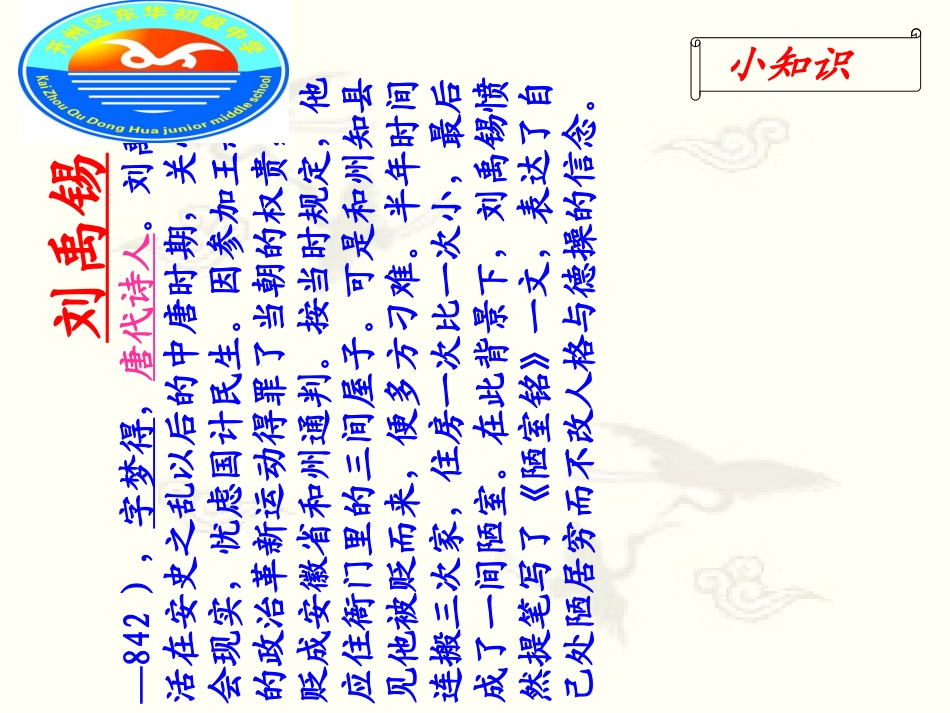 开州区东华初级中学
Kai Zhou Qu Dong Hua junior middle school
小知识
刘禹锡
—842），字梦得，唐代诗人。刘禹
活在安史之乱以后的中唐时期，关
会现实，忧虑国计民生。因参加王
的政治革新运动得罪了当朝的权贵
贬成安徽省和州通判。按当时规定，他
应住衙门里的三间屋子。可是和州知县
见他被贬而来，便多方刁难。半年时间
连搬三次家，住房一次比一次小，最后
成了一间陋室。在此背景下，刘禹锡愤
然提笔写了《陋室铭》一文，表达了自
己处陋居穷而不改人格与德操的信念。